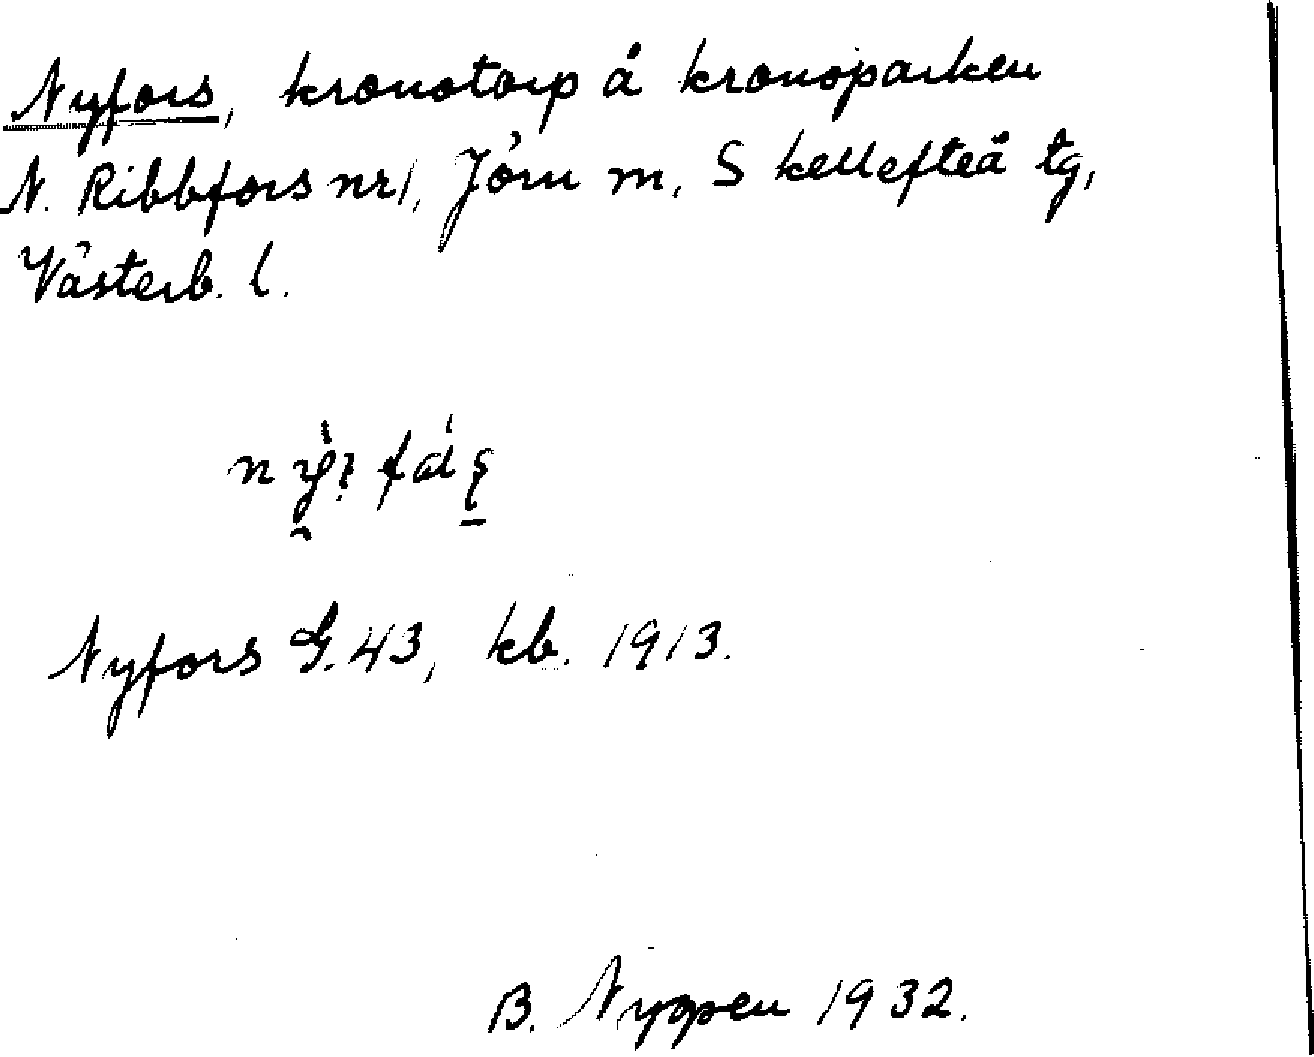 Nyfors, kronotorp å kronoparken
N. Ribbfors nr 1, Jörn sn, Skellefteå tg,
Västerb. l.
Nyfors G.43, kb. 1913.
B. Nyppen 1932.